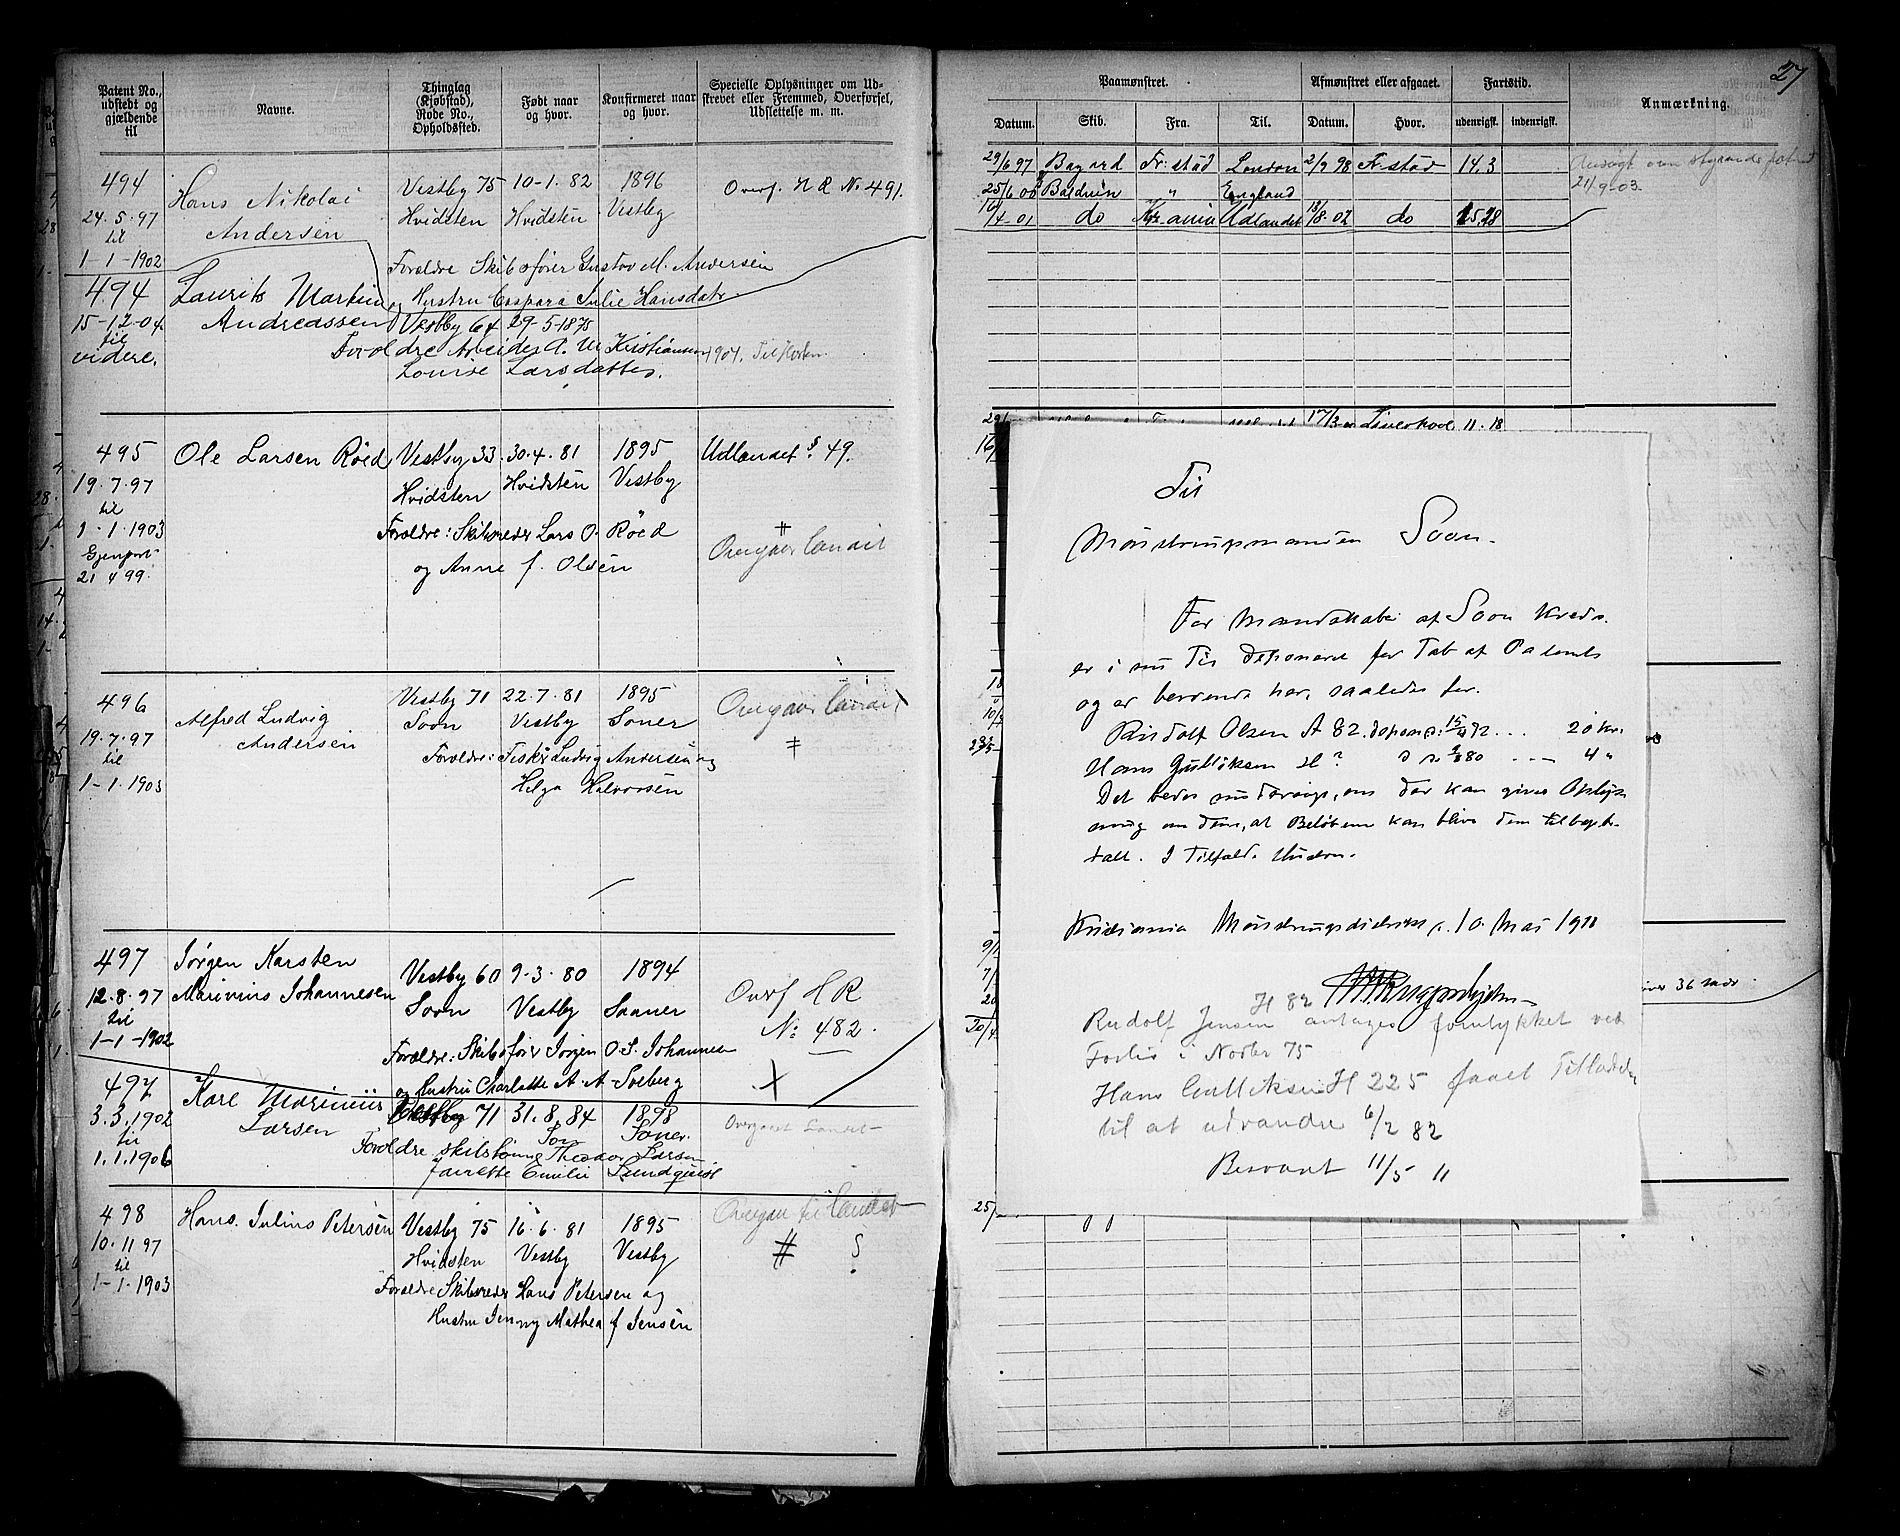 Patent No., udstedt og gjældende til
Navne.
Thinglag (Kjøbstad), Rode No., Opholdssted.
Født naar og hvor.
Konfirmeret naar og hvor.
Specielle Oplysninger om Udskrevet eller Fremmed, Overførsel, Udslettelse m. m.
494
24-5-97
til
1-1-1902
Hans Nikolai
Andersen
Vestby 75 10-1.82 1896
Hvidsten Hvidsten Vestby
Overf. H R No 491.
Forældre Skibsfører Gustav M. Andersen
og Hustru Caspara Julie Hansdatr
494
15-12-04
til
videre.
Laurits Martin
Andreassen
Vestby 64 29-5-1875
Forældre Arbeider A. M. Kristiansen
Louise Larsdatter.
1904. Til Horten
495
19.7.97
til
1-1.1903
Gjenpart
21 4 99.
Ole Larsen Röed
Vestby 33 30.4.81 1895
Hvidsten Hvidsten Vestby
Udlandet § 49.
Forældre: Skibsreder Lars O. Röed
og Anne f. Olsen
#
Overgaar landet
496
19.7.97
til
1-1.1903
Alfred Ludvig
Andersen
Vestby 71 22.7.81 1895
Soon Vestby Soner
Forældre: Fisker Ludvig Andersen og
Helga Halvorsen
Overgaar landet
497
12.8.97
til
1-1-1902
Jørgen Karsten
Marinius Johannesen
Vestby 60 9-3.80 1894
Soon Vestby Saaner
Forældre: Skibsfører Jørgen O. S. Johannesen
og Hustru Charlotte A. A. Solberg
Overf H R
No 482.
X
497
3.3.1902
til
1.1.1906
Karl Marinius
Larsen
Vestby 71 31.8.84 1898
Son Soner.
Forældre skibstømmer Theodor Larsen
Emilie Lundquist
Overgaaet Landet
498
10.11 97
til
1-1.1903
Hans Julius Petersen
Vestby 75 16.6.81 1895
Hvidsten Vestby Vestby
Forældre Skibsreder Hans Petersen og
Hustru Jenny Mathea f Jensen
Overgaar til landet
# ?
27
Paamønstret.
Afmønstret eller afgaaet.
Fartstid.
Anmærkning.
Datum. Skib. Fra. Til. Datum. Hvor. udenrigsk. indenrigsk.
29/6 97 Fr:stad London 2/9 98 Fr.stad 14.3
25/6 00 Baldvin " England
16/4-01 do Kr.ania Udlandet 13/8-02 do 15.28
21/9-03.
17/3 Liverpool 11.18
Til
Mønstringsmanden Soon.
For Mandskabe af Soon Kreds.
er i sin Tid deponeret for Tab af Patents
og er beroende her, saaledes for.
Rudolf Olsen A 82. depon. 15/4 72 ... 20 kr.
Hans Gulliksen H? 80 ---- 4 "
Det bedes undersøgt, om der kan gives Oplys
ning om dem, at Beløbene kan blive dem tilbagebe-
talt. I Tilfælde
Kristiania Mønstringsdistrikt, 10. Mai 1911
Rudolf Jensen H 82 antages forulykket ved
Forlis i Novbr 75
Hans Gulliksen H 225 faaet Tilladelse
til at udvandre 6/2 82
Besvart 11/5 11
36 mdr.
25/